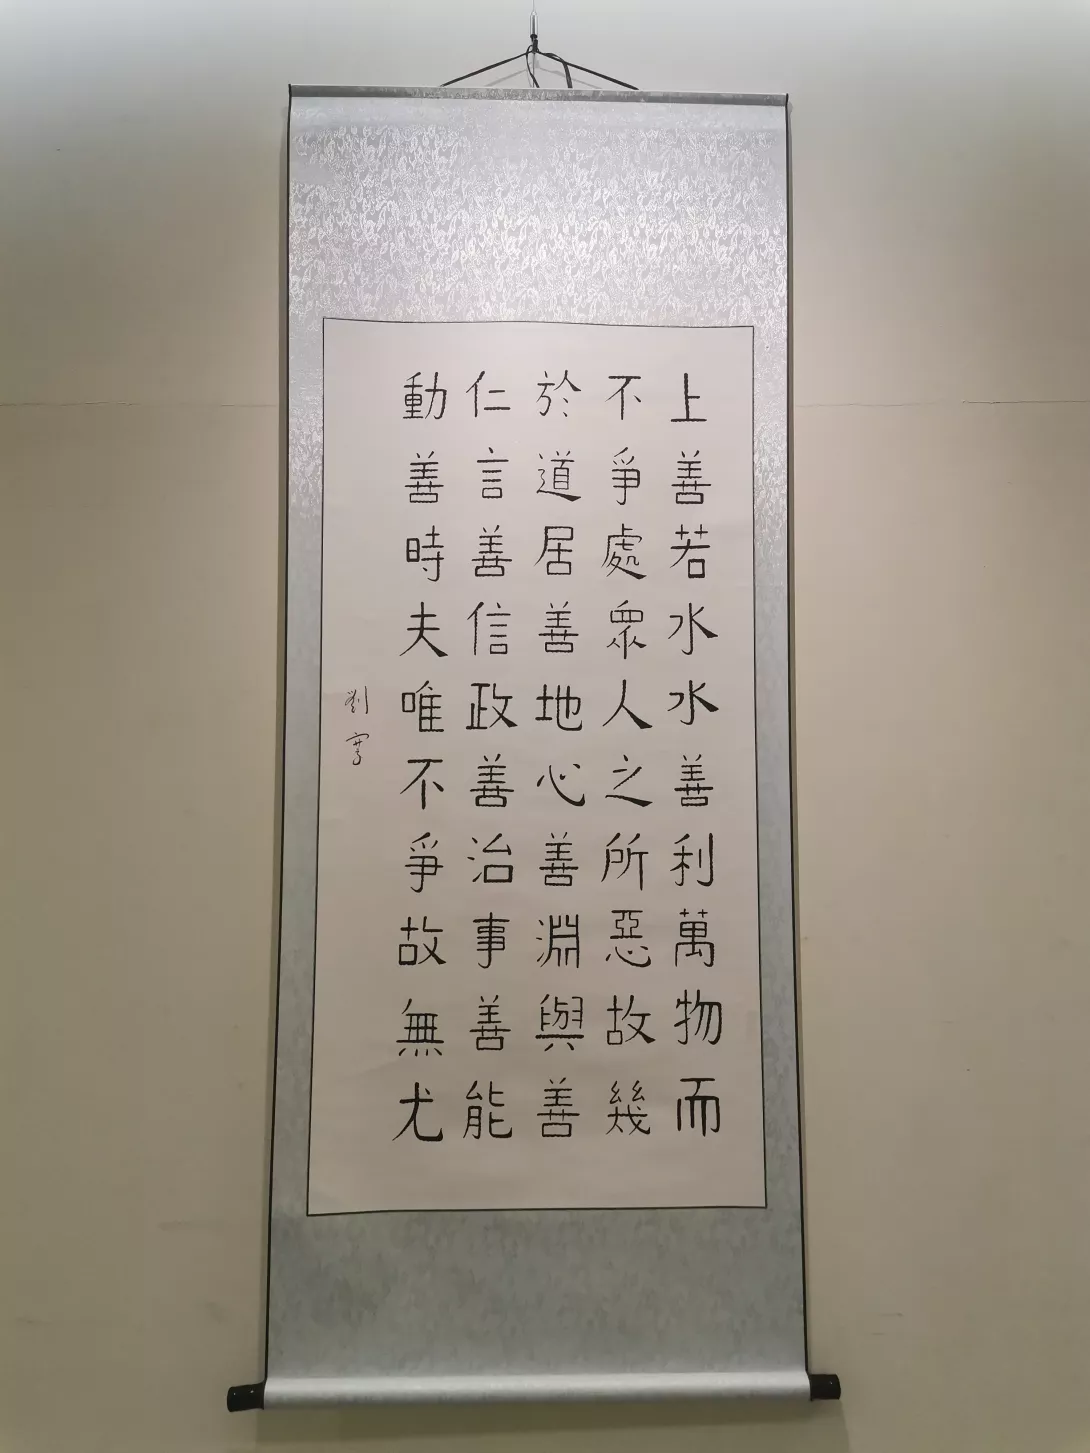 上善若水水善利萬物而
不爭處衆人之所惡故幾
於道居善地心善淵與善
仁言善信政善治事善能
動善時夫唯不爭故無尤
劉